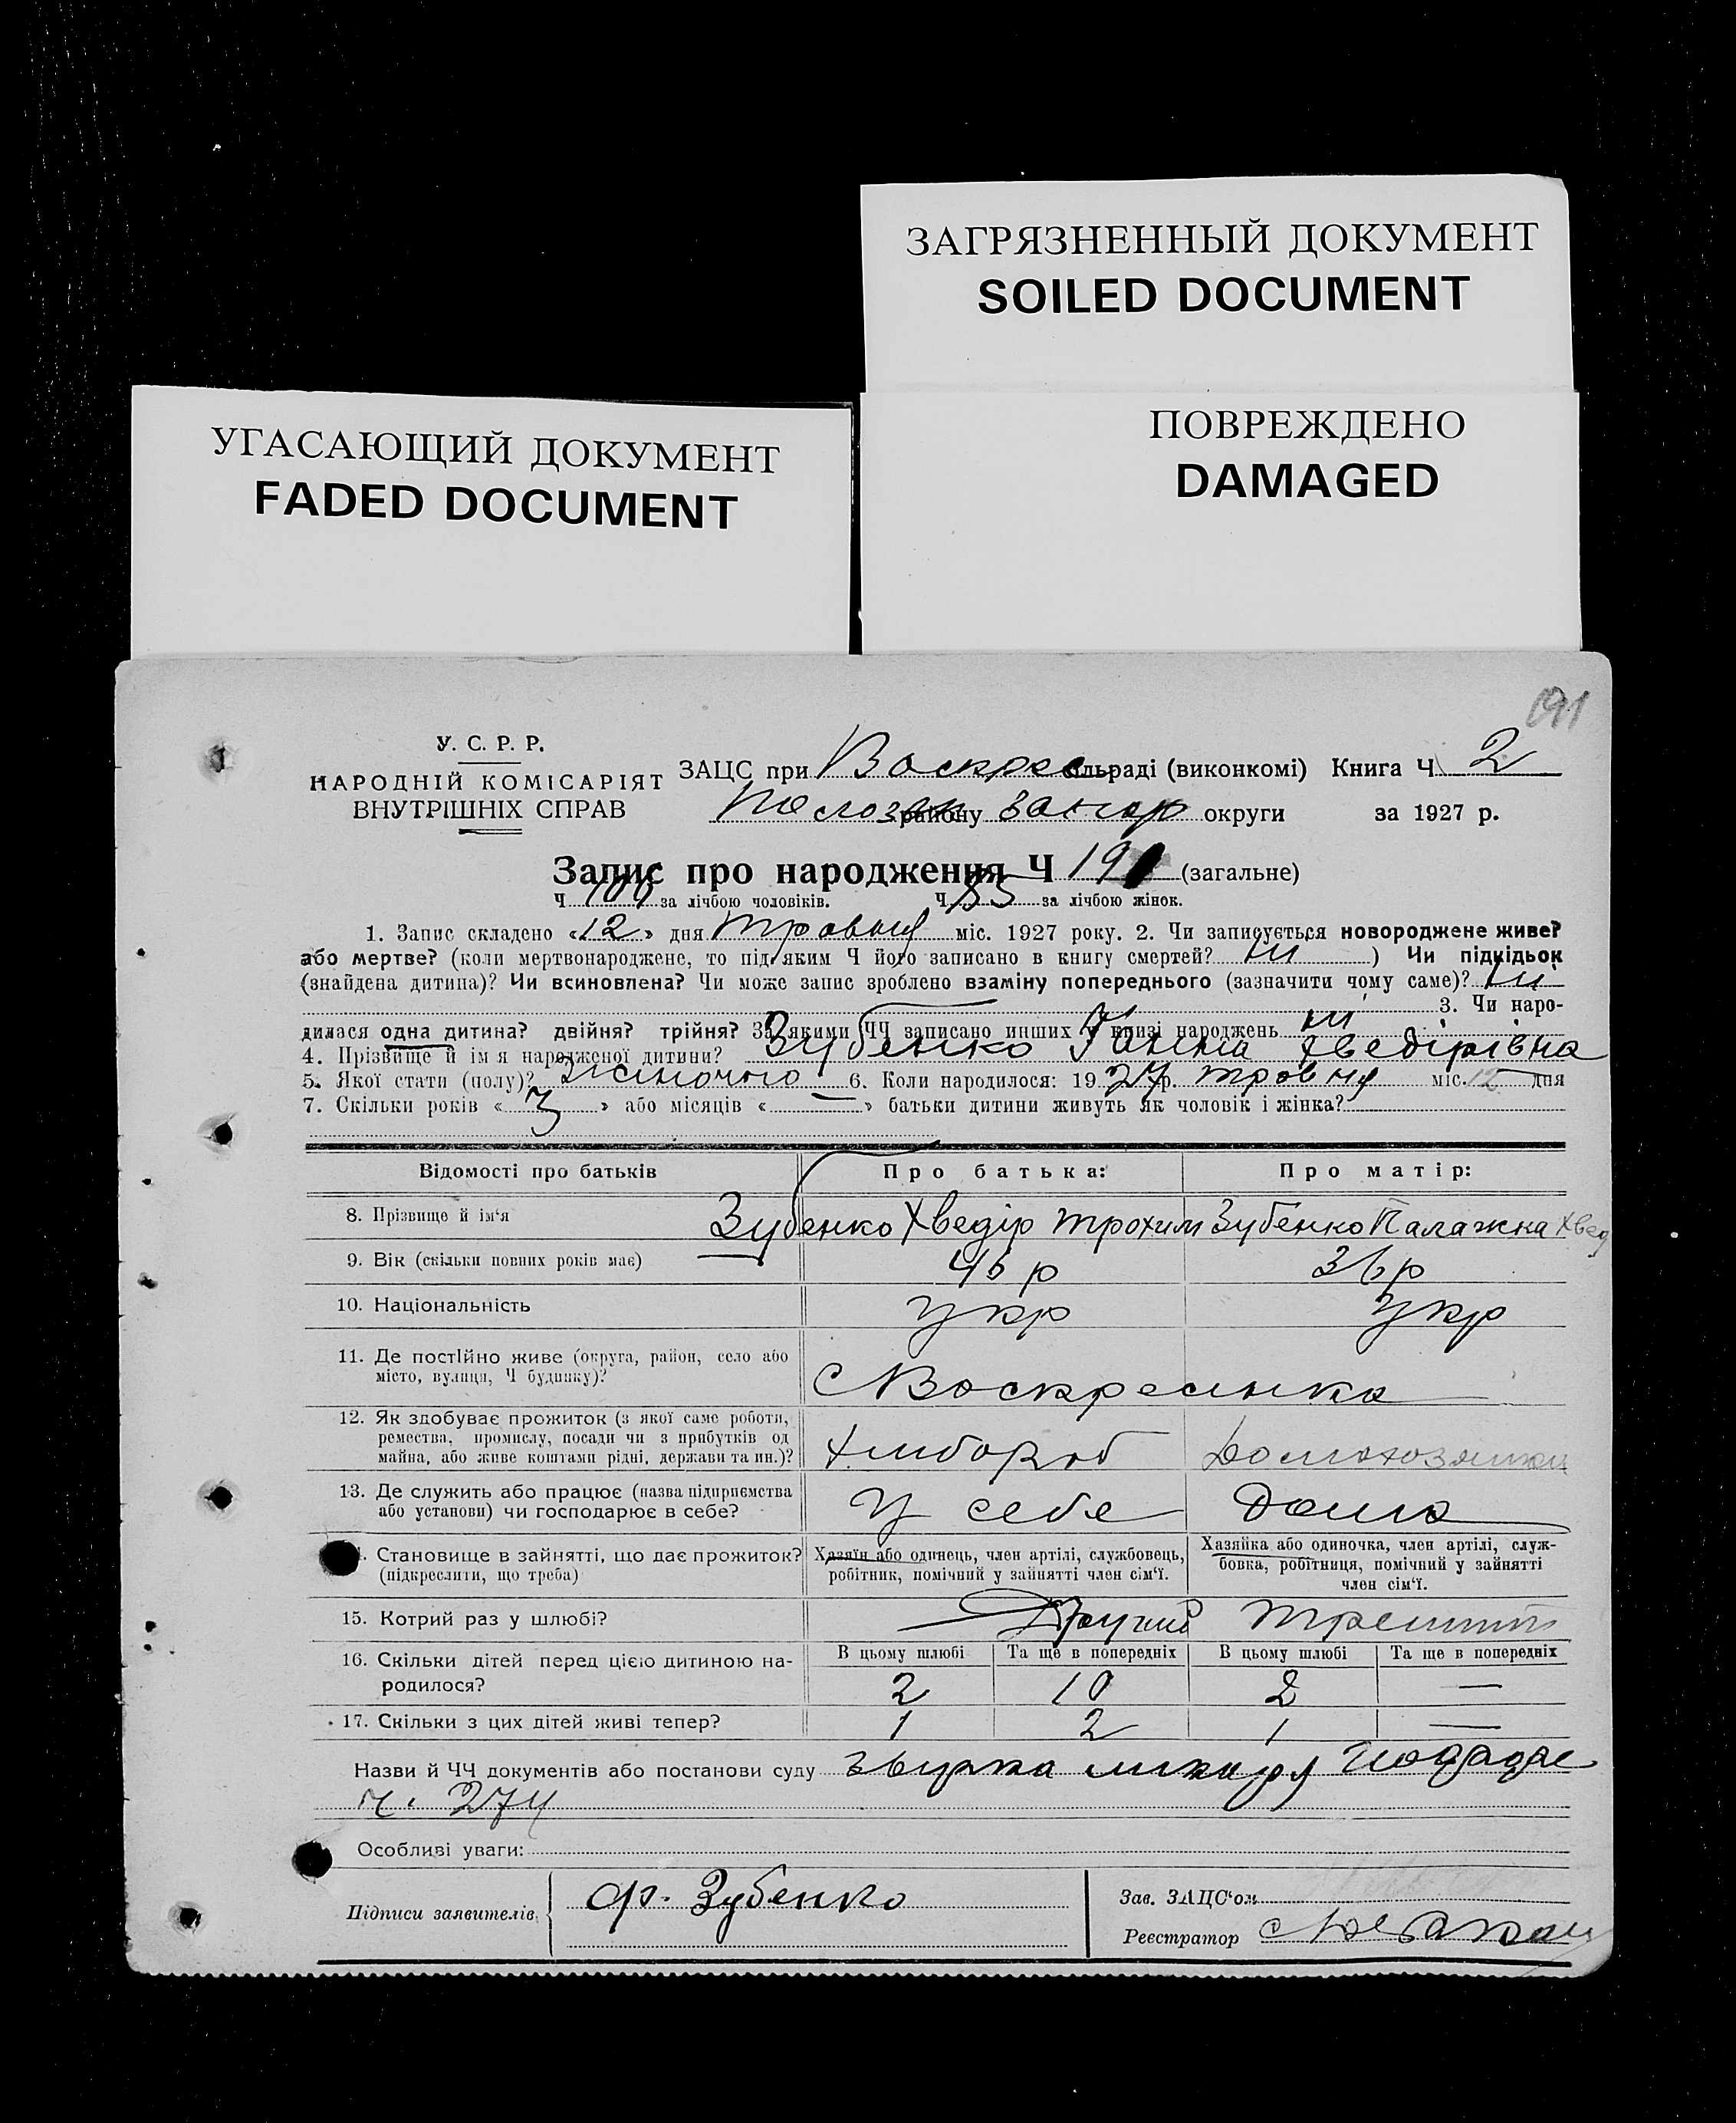 ЗАГРЯЗНЕННЫЙ ДОКУМЕНТ
SOILED DOCUMENT
УГАСАЮЩИЙ ДОКУМЕНТ
FADED DOCUMENT
ПОВРЕЖДЕНО
DAMAGED
191
У. С. Р. Р.
НАРОДНІЙ КОМІСАРІЯТ
ВНУТРІШНІХ СПРАВ
ЗАЦС при Воскрес сільраді (виконкомі) Книга Ч 2
Полозск району Запор округи за 1927 р.
Запис про народження Ч 191 (загальне)
Ч за лічбою чоловіків. Ч 85 за лічбою жінок.
1. Запис складено «12» дня травня міс. 1927 року. 2. Чи записується новороджене живе?
або мертве? (коли мертвонароджене, то під яким Ч його записано в книгу смертей? ні ) Чи підкідьок
(знайдена дитина)? Чи всиновлена? Чи може запис зроблено взаміну попереднього (зазначити чому саме)? ні
3. Чи наро-
дилася одна дитина? двійня? трійня? За якими ЧЧ записано инших у книзі народжень ні
4. Прізвище й ім'я народженої дитини? Зубенко Ганна Хведірівна
5. Якої стати (полу)? жіночого 6. Коли народилося: 1927 р. травня міс. 12 дня
7. Скільки років « 3 » або місяців « — » батьки дитини живуть як чоловік і жінка?
Відомості про батьків Про батька: Про матір:
8. Прізвище й ім'я Зубенко Хведір Трохим Зубенко Палажка Хвед
9. Вік (скільки повних років має) 46 р 36 р
10. Національність Укр Укр
11. Де постійно живе (округа, район, село або
місто, вулиця, Ч будинку)? С Воскресинка
12. Як здобуває прожиток (з якої саме роботи,
ремества, промислу, посади чи з прибутків од
майна, або живе коштами рідні, держави та ин.)? Хлібороб Домохозяйка
13. Де служить або працює (назва підприємства
або установи) чи господарює в себе? У себе Дома
. Становище в зайнятті, що дає прожиток?
(підкреслити, що треба)
Хазяїн або одинець, член артілі, службовець,
робітник, помічний у зайнятті член сім'ї.
Хазяйка або одиночка, член артілі, служ-
бовка, робітниця, помічний у зайнятті
член сім'ї.
15. Котрий раз у шлюбі? Другий Третий
В цьому шлюбі Та ще в попередніх В цьому шлюбі Та ще в попередніх
16. Скільки дітей перед цією дитиною на-
родилося? 2 10 2 —
17. Скільки з цих дітей живі тепер? 1 2 1 —
Назви й ЧЧ документів або постанови суду лікаря
ч. 274
Особливі уваги:
Підписи заявителів Ф. Зубенко
Зав. ЗАЦС'ом
Реєстратор